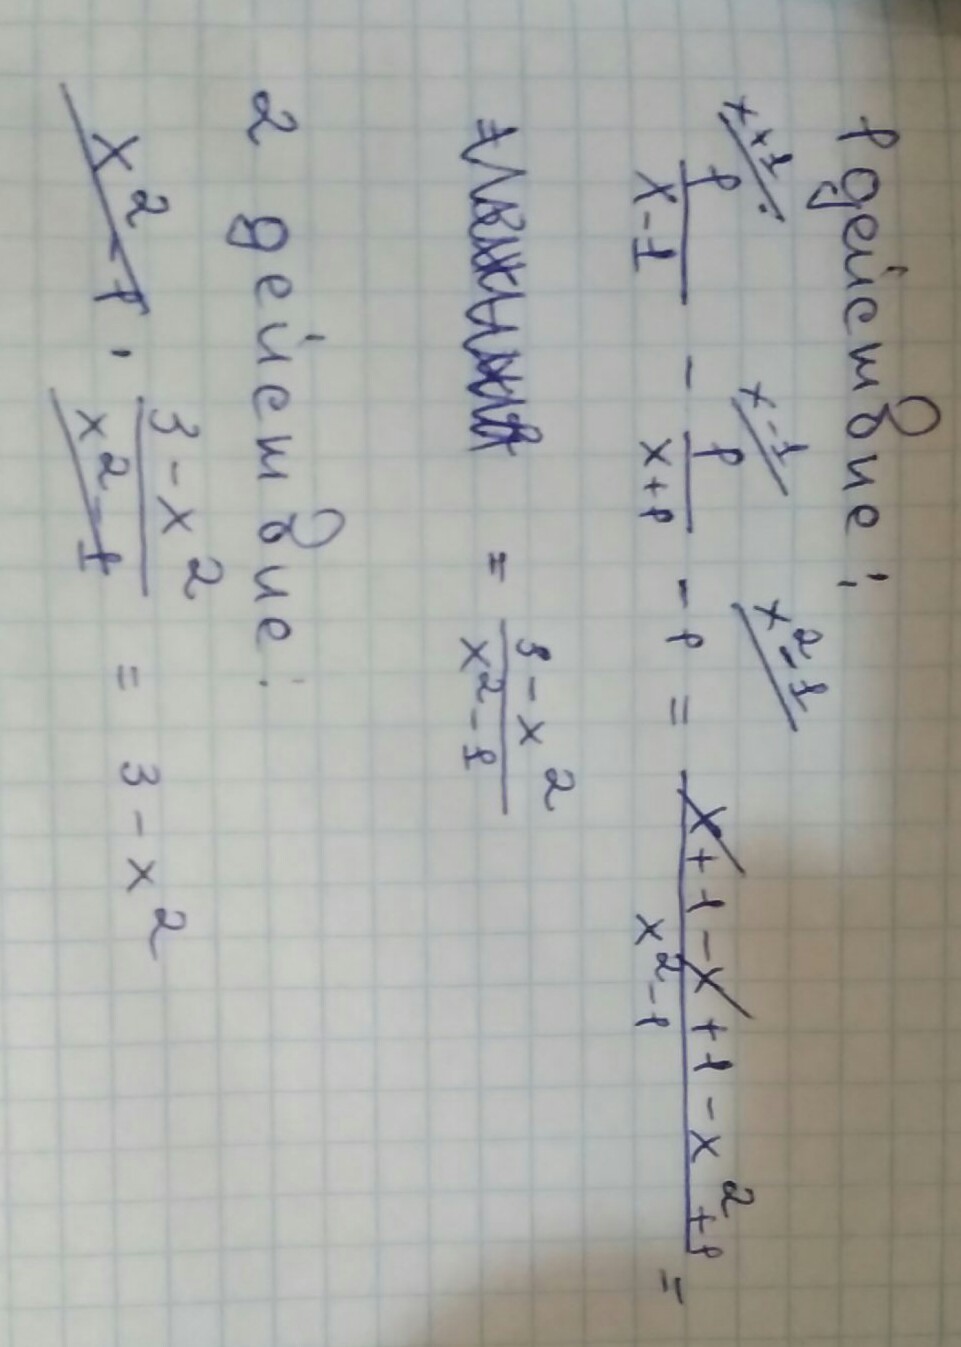 1 действие:
x+1 x-1 x²-1
1/(x-1) - 1/(x+1) - 1 = (x+1-x+1-x²+1)/(x²-1) =
= (3-x²)/(x²-1)
2 действие:
x²-1 · (3-x²)/(x²-1) = 3-x²